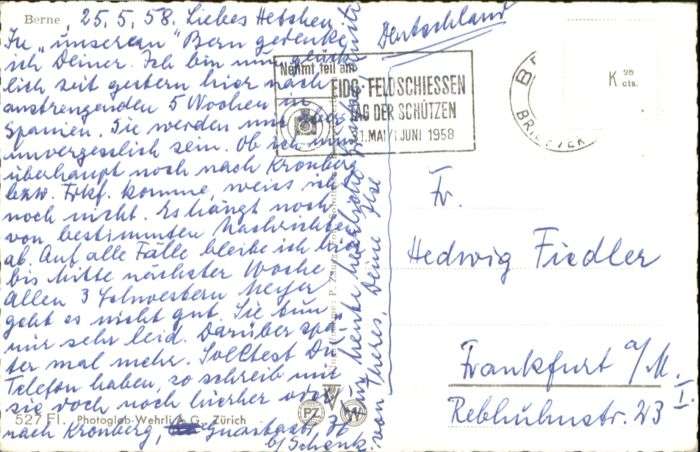 Berne, 25.5.58. Liebes Hetschen,
In „unserem" Bern gedenke
ich Deiner. Ich bin nun glück-
lich seit gestern hier nach
anstrengenden 5 Wochen in
Spanien. Sie werden mir aber
unvergesslich sein. Ob ich nun
überhaupt noch nach Kronberg
bzw. Frkf. komme, weiss ich
noch nicht. Es hängt noch
von bestimmten Nachrichten
ab. Auf alle Fälle bleibe ich hier
bis Mitte nächster Woche
Allen 3 Schwestern Meyer
geht es nicht gut. Sie tun
mir sehr leid. Darüber spä-
ter mal mehr. Solltest Du
Telefon haben, so schreib mir
sie doch noch hierher oder
527 Fl. Photoglob-Wehrli A.G. Zürich
nach Kronberg, 36
b/ Schenk.
heute herzliche
von Theres. Deine Else
PZ
W
Deutschland
Nehmt teil am
EIDG. FELDSCHIESSEN
TAG DER SCHÜTZEN
31. MAI/1. JUNI 1958
K 25 cts.
Fr.
Hedwig Fiedler
Frankfurt a/M. I
Rebhuhnstr. 23